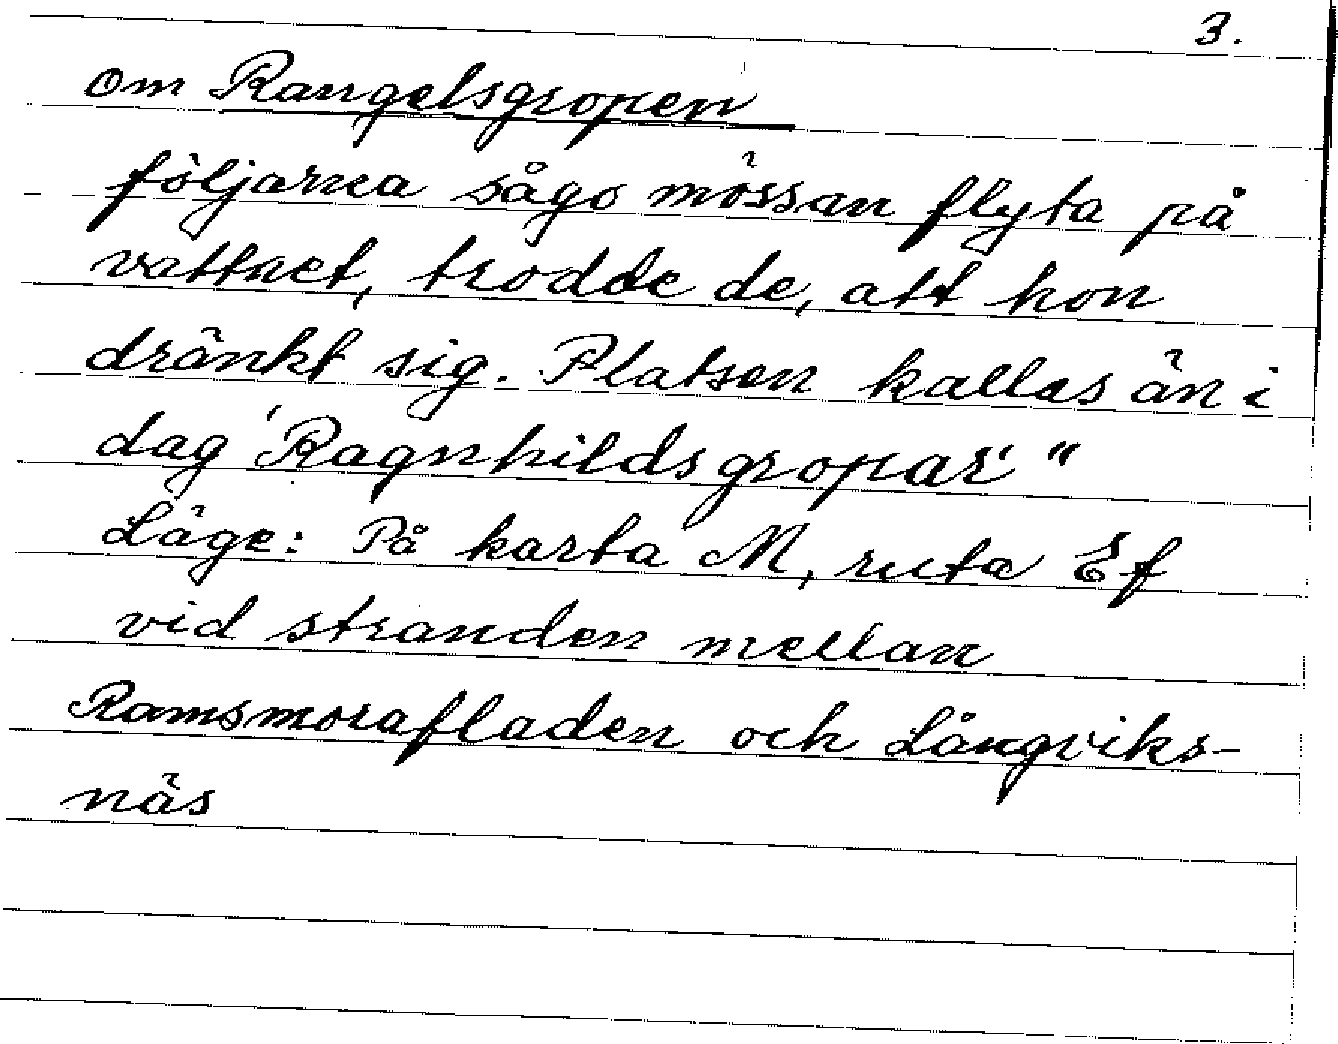 3.
om Rangelsgropen
följarna sågo mössan flyta på
vattnet, trodde de, att hon
dränkt sig. Platsen kallas än i
dag 'Ragnhildsgropar' "
Läge: På karta M, ruta Ef
vid stranden mellan
Ramsmorafladen och Långviks-
näs